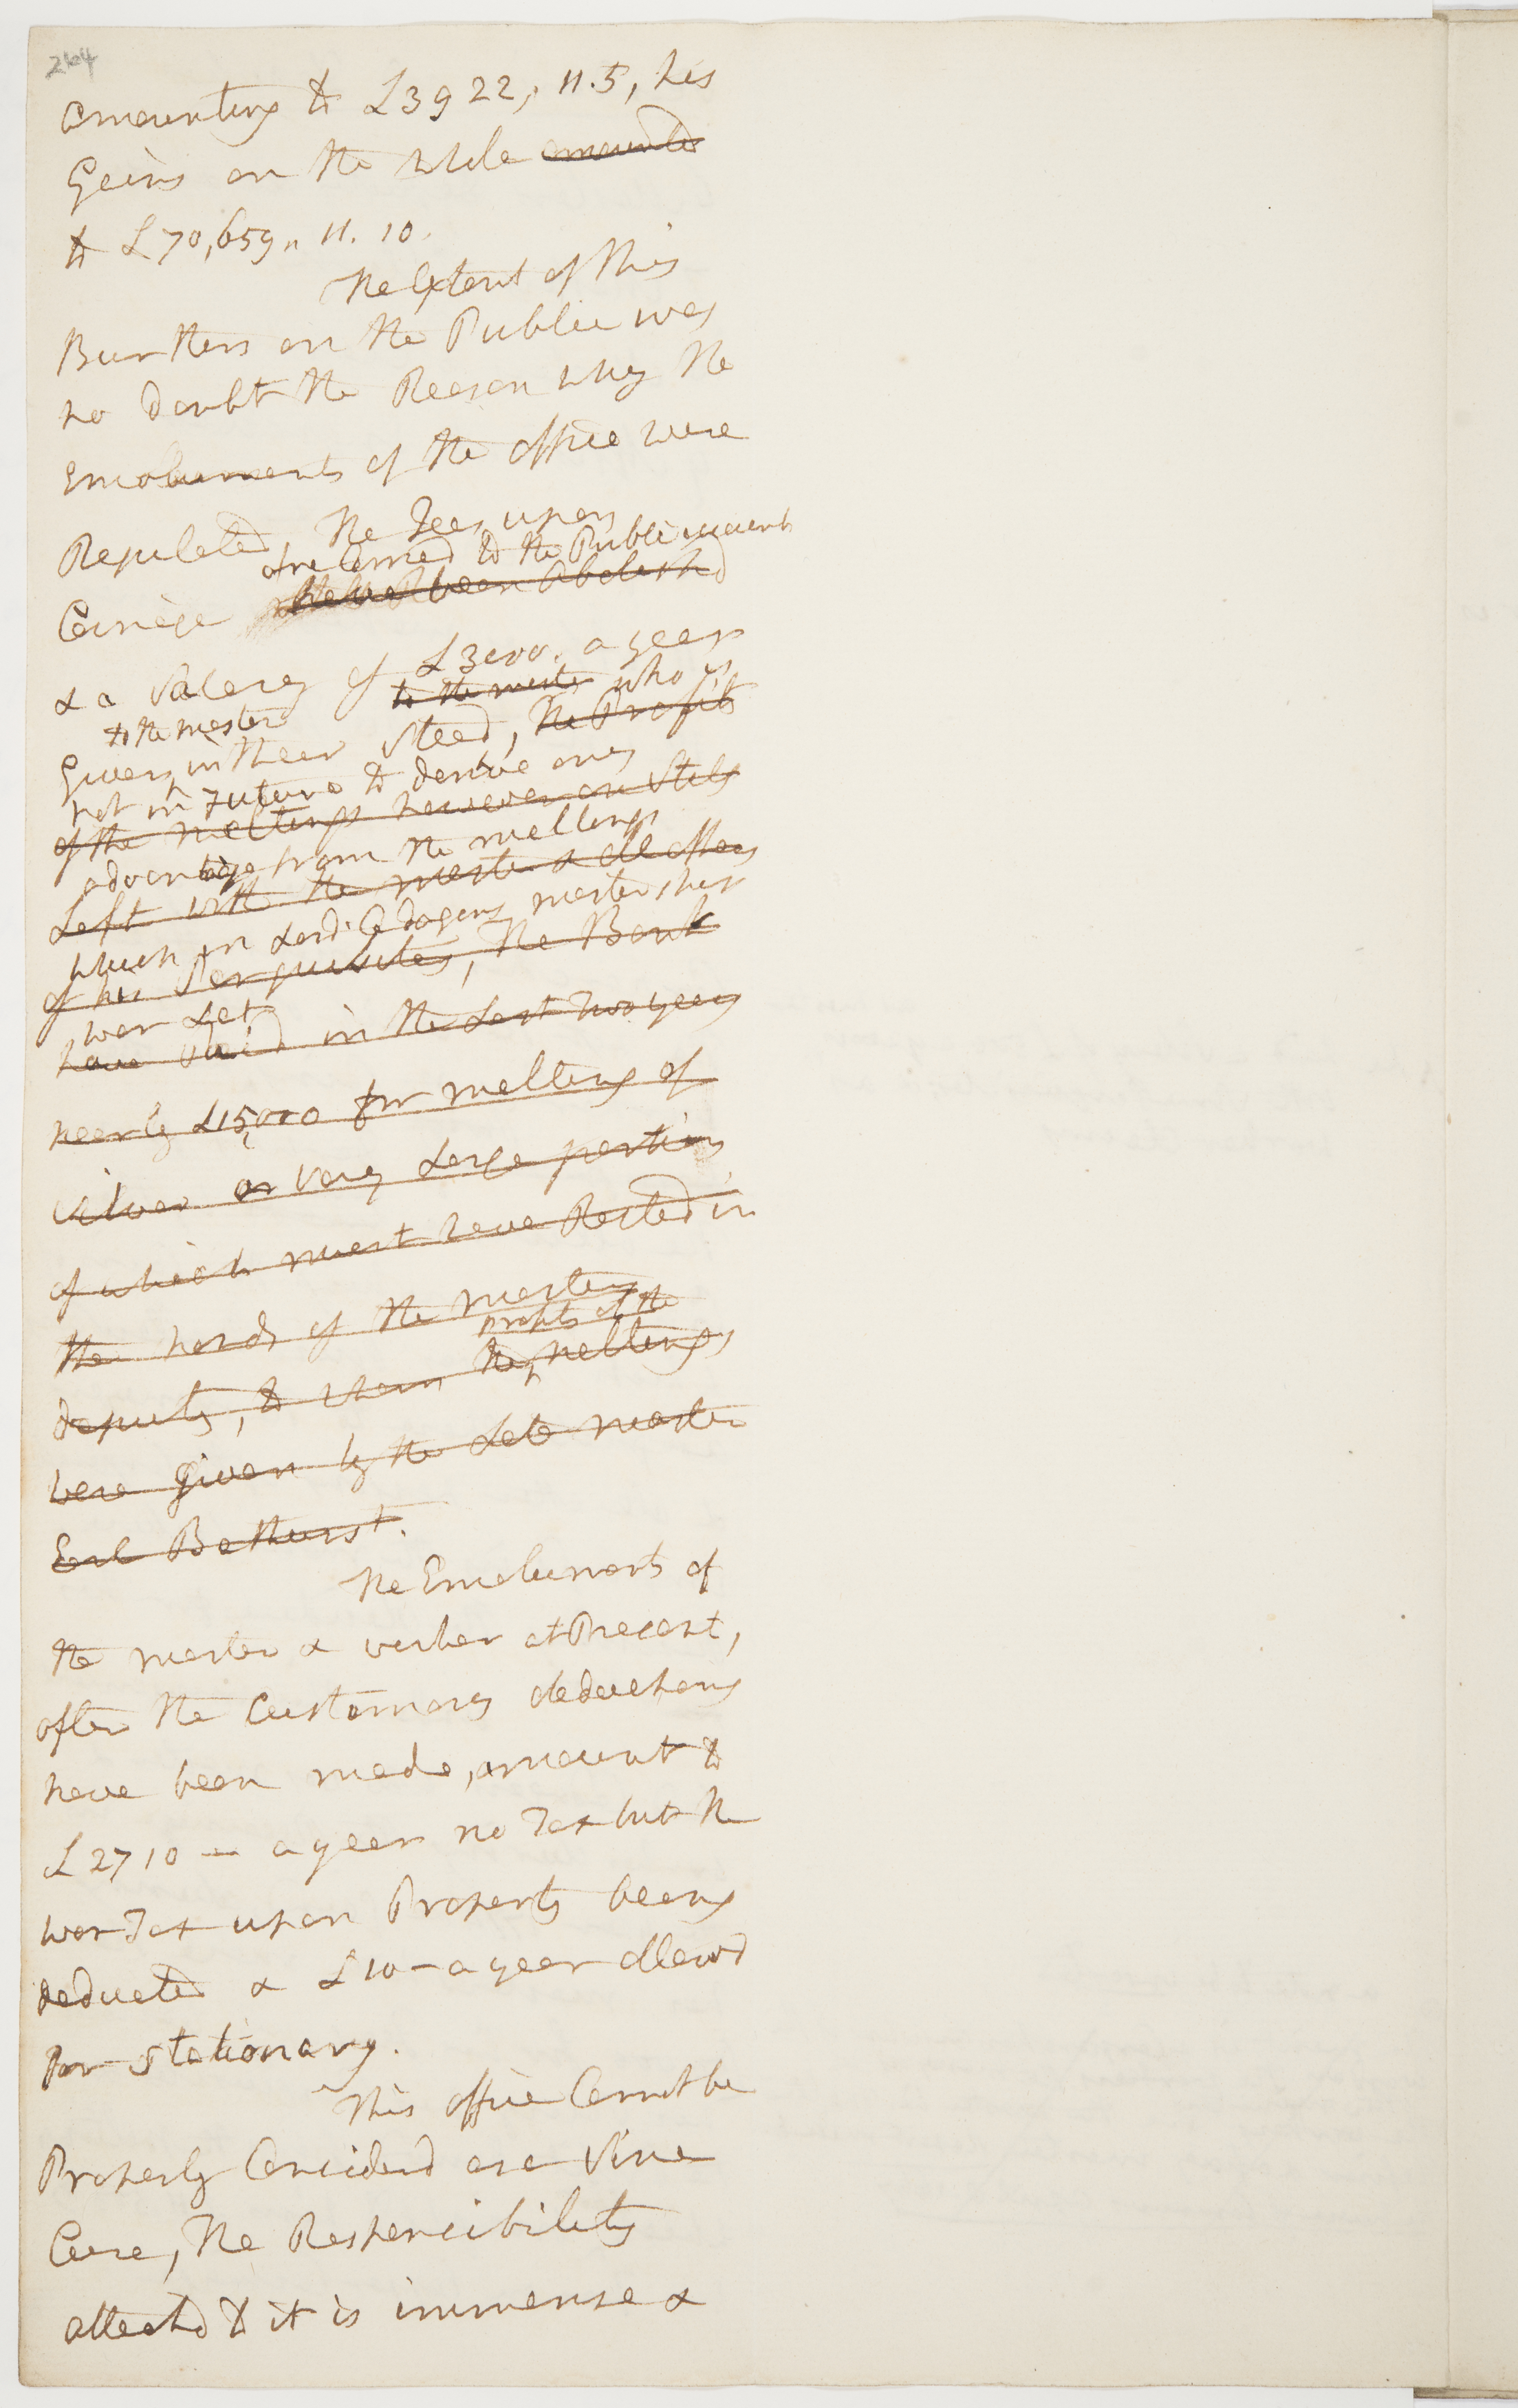 264
amounting to £3922,, 11. 5, his
Gains on the whole amounted
to £70,659,, 11. 10.
The Extent of this
Burthen on the Public was
no doubt the Reason why the
Emoluments of the office were
Regulated, The Fees upon
returned to the Public account
Coinage have been Abolishd
& a Salary of £3000. a year
to the master who is
to the master
Given in their Stead, the Profits
not in Future to derive any
of the meltings however are Still
advantage from the meltings
Left with the master & all offices
which in Lord Cadogans mastership
of his Perquisites, The Bank
was Let
have Paid in the Last two years
nearly £15,000 for melting of
silver a very Large portion
of which must have Rested in
the hands of the masters
profits of the
deputy, to whom the meltings
were given by the Late master
Earl Bathurst.
The Emoluments of
the master & worker at Present,
after the Customary deductions
have been made, amount to
£2710 — a year no Tax but the
war Tax upon Property being
deducted & £10 — a year allowd
for stationary.
This office Cannot be
Properly Considerd as a Sine
Cure, The Responsibility
attachd to it is immense &